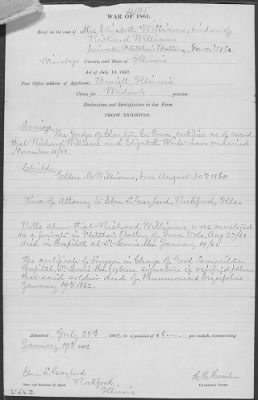 WAR OF 1861.
Brief in the case of Mrs Elizabeth Williams, widow of
Richard Williams
private, Fletcher's Battery, Iowa Vols.
Winnebago County, and State of Illinois
Act of July 14, 1862.
Post Office address of Applicant: Illinois
Claim for Widow's pension
Declaration and Identification in due form.
PROOF EXHIBITED.
Marriage
The Judge of Co. Iowa, certifies as of record
that Richard Williams and Elizabeth were married
November
Child
Ellen M Williams, born August 30th 1860
Power of Attorney to Eben Gaylord, Rockford, Ills.
Rolls show that Richard Williams was enrolled
as a private in Battery of Iowa Vols, Aug 27/61
died in Hospital at St Louis Mo January 19/62
The certificate of Surgeon in Charge of Good Samaritan
Hospital, St Louis Mo (whose signature is verified) shows
that said soldier died of Pneumonia
January 19th 1862.
Admitted July 23d 1863, to a pension of $ per month, commencing
January 19th 1862
Eben Gaylord
Rockford,
Illinois